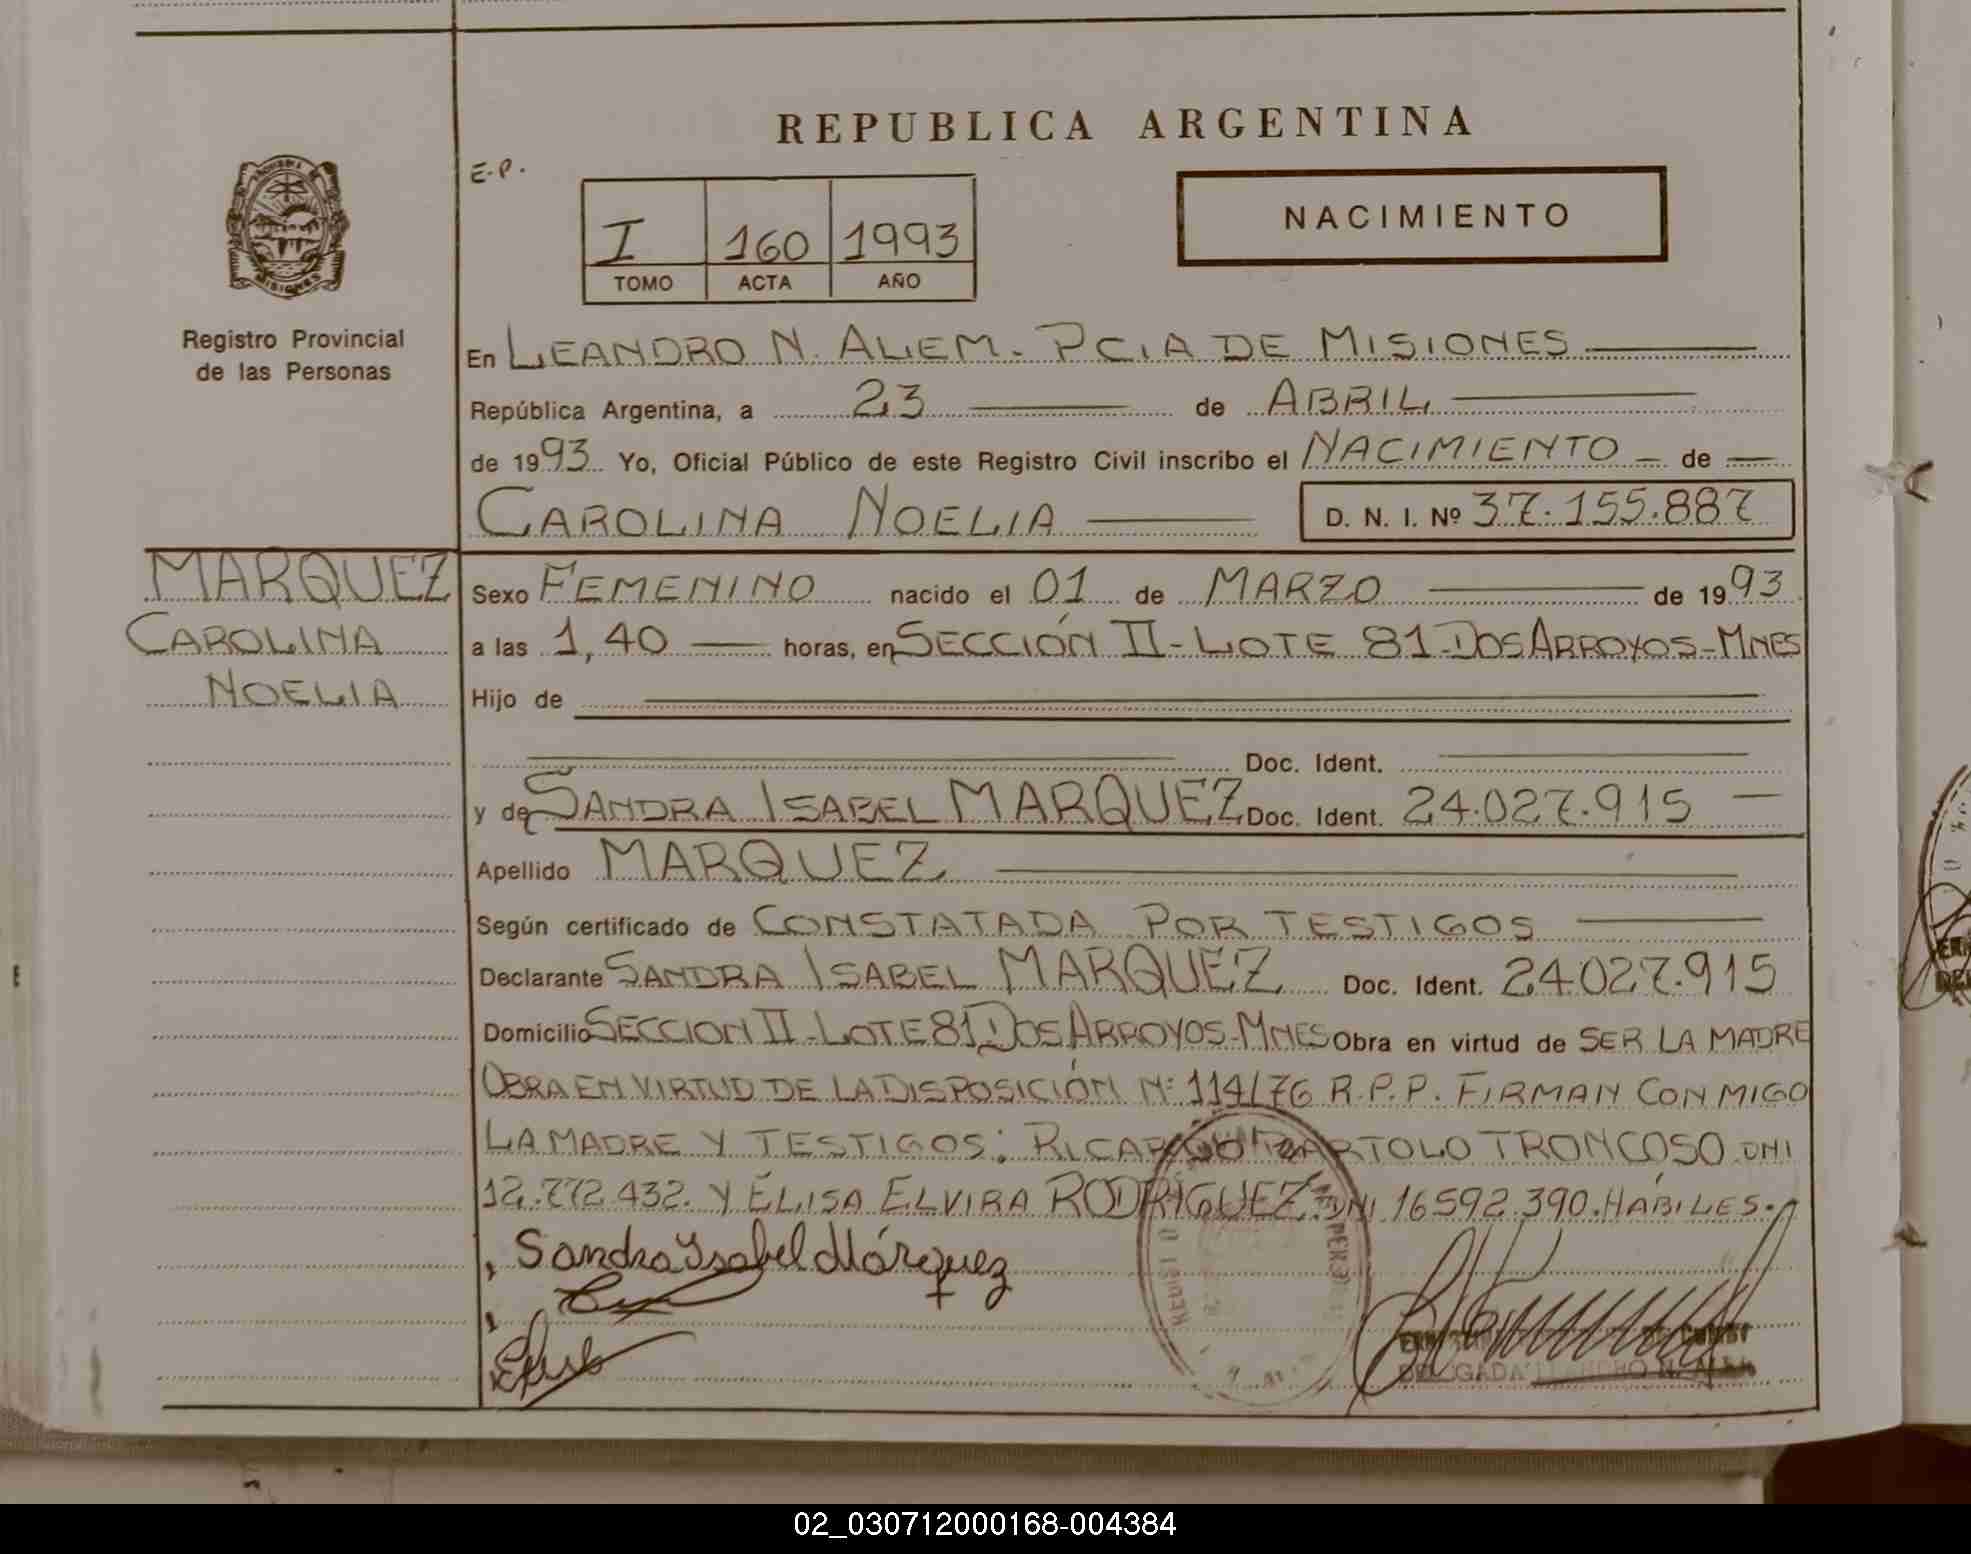 REPUBLICA ARGENTINA
E.P.
NACIMIENTO
I 160 1993
TOMO ACTA AÑO
MISIONES
Registro Provincial
de las Personas
En LEANDRO N. ALEM. PCIA DE MISIONES
República Argentina, a 23 de ABRIL
de 1993 Yo, Oficial Público de este Registro Civil inscribo el NACIMIENTO de
CAROLINA NOELIA D. N. I. Nº 37.155.887
MARQUEZ
CAROLINA
NOELIA
Sexo FEMENINO nacido el 01 de MARZO de 1993
a las 1,40 horas, en SECCIÓN II - LOTE 81-DOS ARROYOS-MNES
Hijo de
Doc. Ident.
y de SANDRA ISABEL MARQUEZ Doc. Ident. 24.027.915
Apellido MARQUEZ
Según certificado de CONSTATADA POR TESTIGOS
Declarante SANDRA ISABEL MARQUEZ Doc. Ident. 24.027.915
Domicilio SECCION II - LOTE 81 DOS ARROYOS-MNES Obra en virtud de SER LA MADRE
OBRA EN VIRTUD DE LA DISPOSICIÓN Nº 114/76 R.P.P. FIRMAN CON MIGO
LA MADRE Y TESTIGOS: RICARDO BARTOLO TRONCOSO DNI
12.772.432. Y ELISA ELVIRA RODRIGUEZ. DNI 16592.390. HÁBILES.
Sandra Ysabel Márquez
02_030712000168-004384